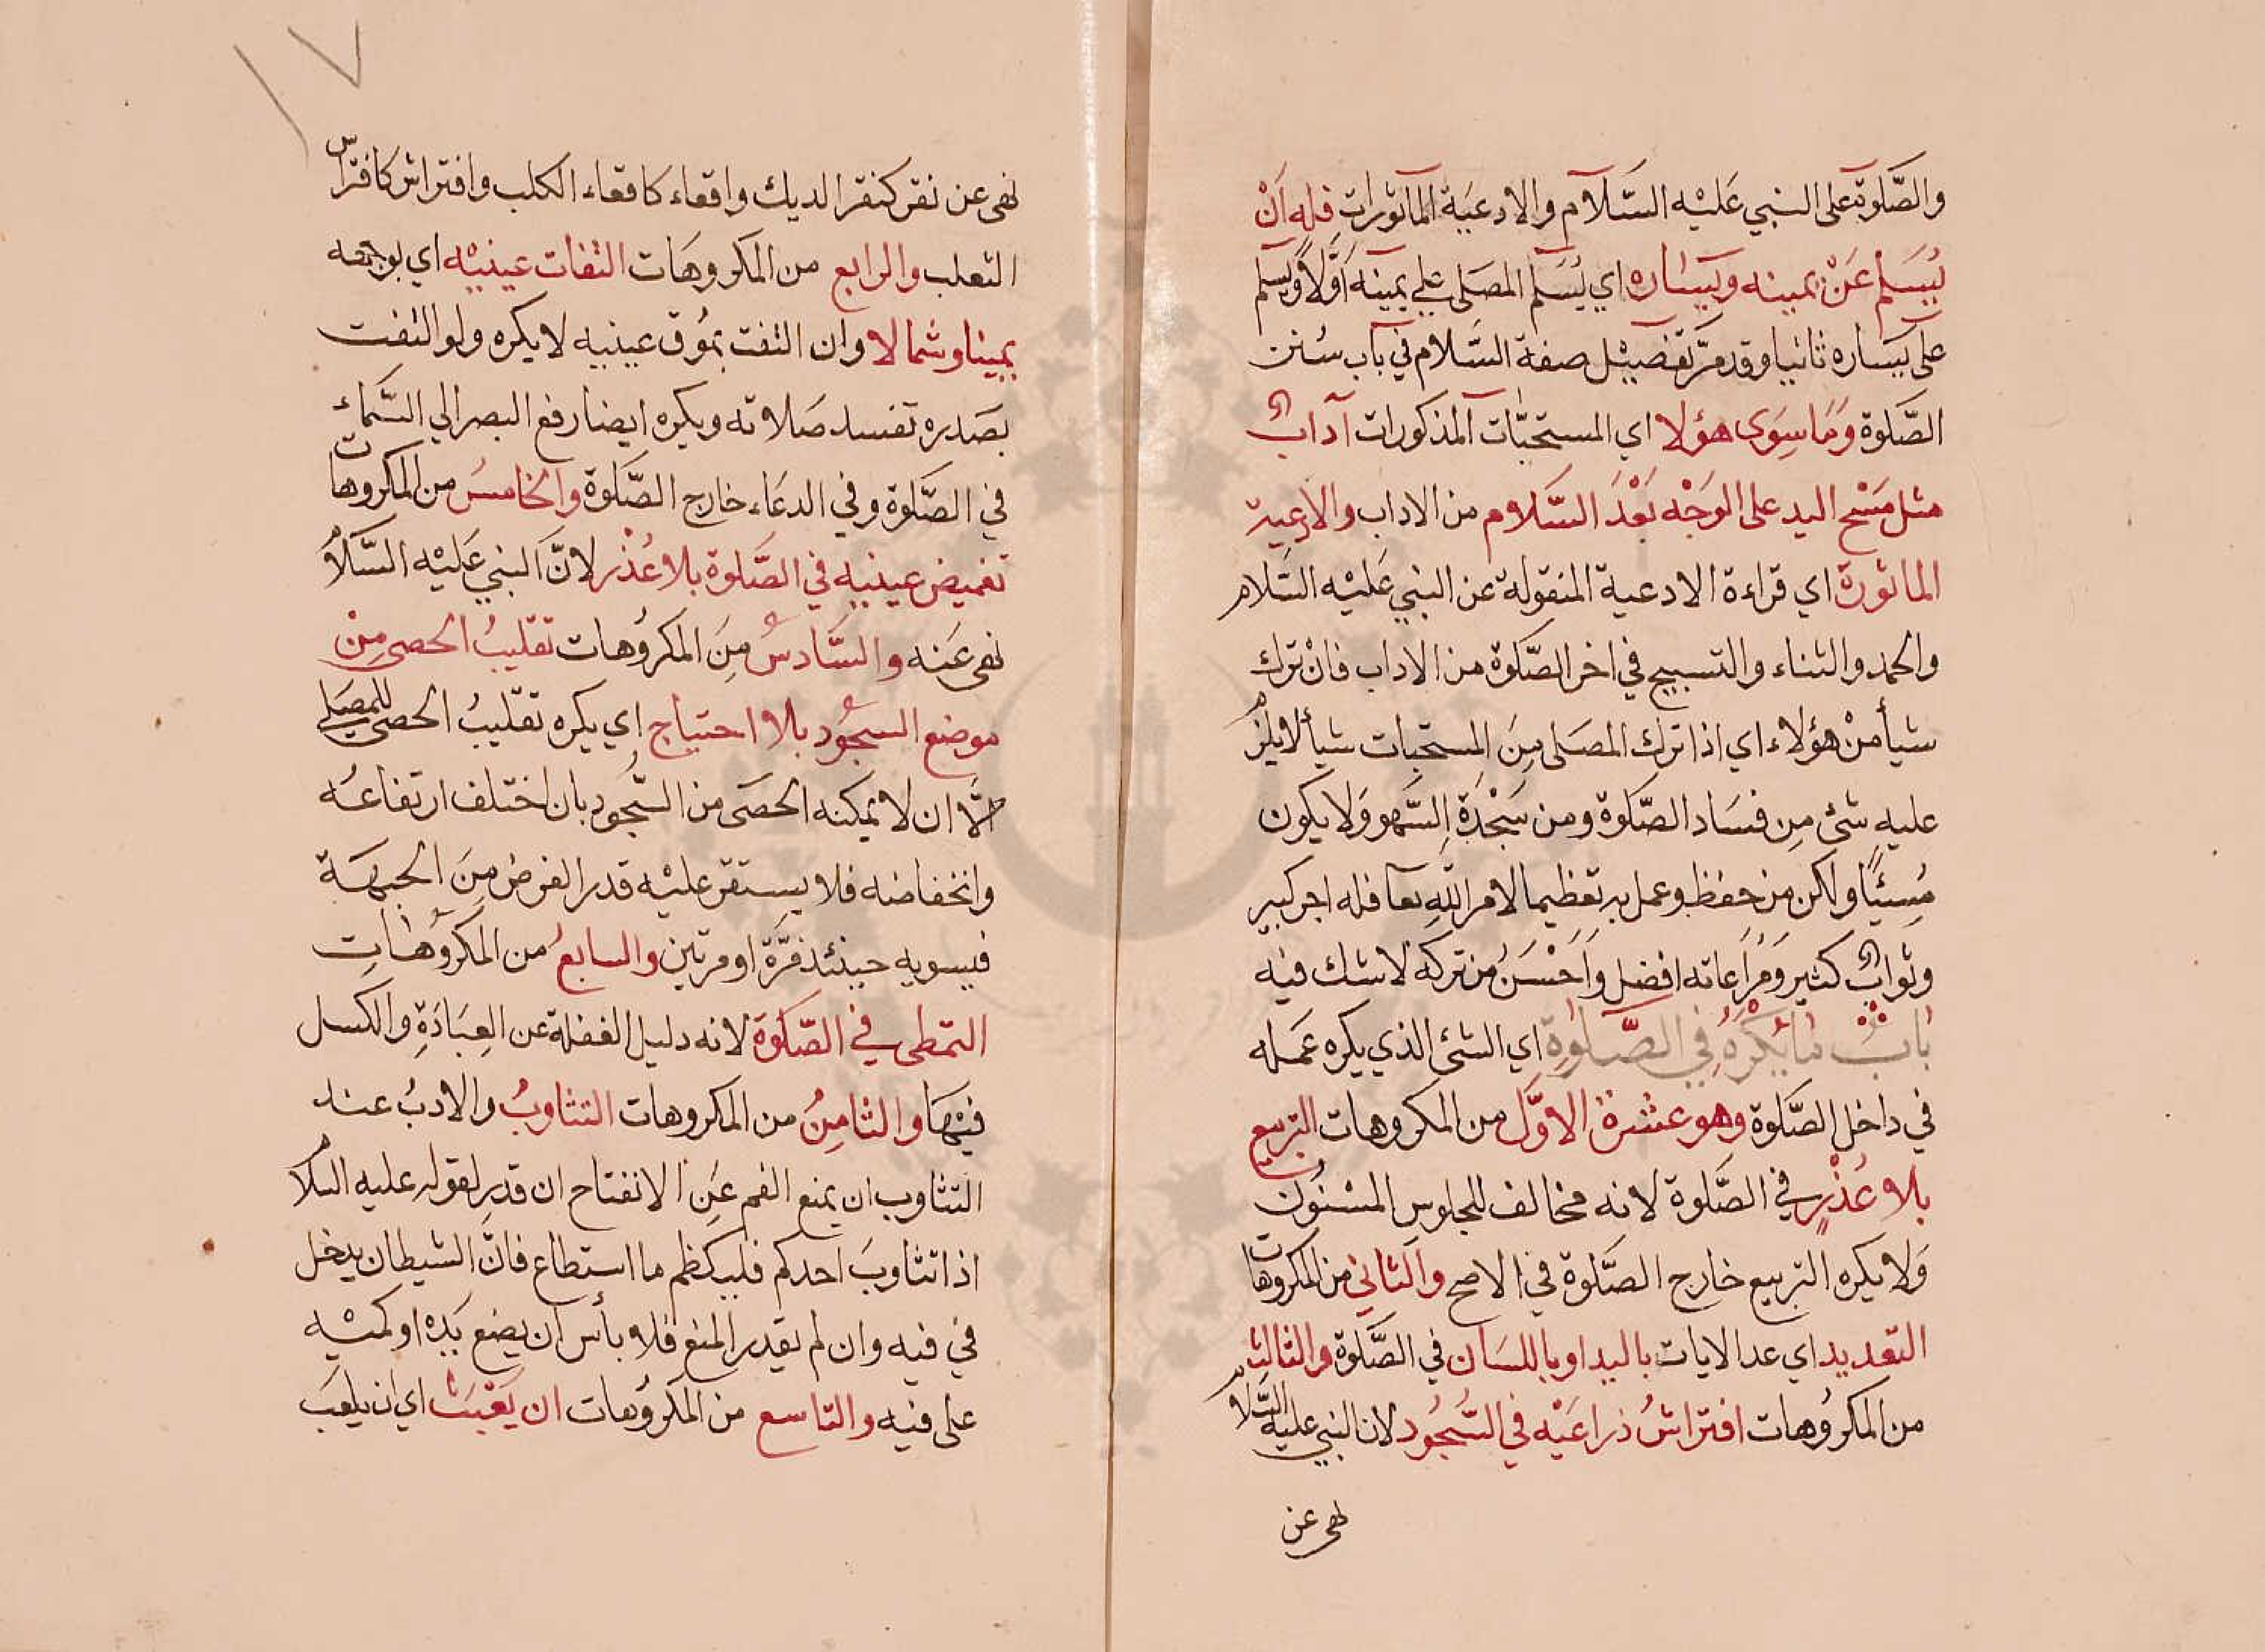 والصَّلوة على النبي عَليْه السَّلام والادعيَة المأثورات فله اَنْ
يُسَلم عَنْ يمينه ويَسَاره اي يُسَلم المصَلى على يمينه اَوَّلاً ويسلم
على يَسَاره ثانيا وقد مرّ تفصيْل صفة السَّلام في باب سُنن
الصَّلوة وَمَا سِوَى هؤلا اي المستحبَّات المذكورات آدابٌ
مثل مَسْح اليد على الوَجْه بَعْدَ السَّلام من الاداب والادعية
الماثورة اي قراءة الادعية المنقولة عن النبي عَليْه السَّلام
والحمد والثناء والتسبيح في اخر الصَّلوة من الاداب فانْ ترك
شيأ منْ هؤلاء اي اذا ترك المصَلى مِنَ المستحبات شيأ لا يلزمُ
عليه شئ مِن فسَاد الصَّلوة ومن سَجْدَة السَّهو وَلا يكون
مُسِيئًا ولاكن من حفظ وعمل به تعظيما لامر اللّه تعا فله اجر كبير
وثوابٌ كثير وَمُرَاعاته افضل وَاَحْسَنُ من تركه لا شك فيه
بابُ مَا يُكْرَهُ في الصَّلوٰةِ اي الشئ الذي يكره عَمله
في داخل الصَّلوة وهو عشرة الاوَّل من المكروهات التربيع
بلا عُذْرٍ في الصَّلوة لانه مخالف للجلوس المسْنُون
وَلا يكره التربيع خارج الصَّلوة في الاصح والثاني من المكروهات
التعديد اي عد الايات باليد او باللسَان في الصَّلوة والثالث
من المكروُهات افتراشُ ذراعَيْه في السُّجُود لان النبي عليه السَّلامُ
نهى عن
١٧
نهى عن نقر كنقر الديك واقعاء كاقعاء الكلب وافتراش كافتراش
الثعلب والرابع من المكروهَات التفات عينيْه اي بوجهه
يمينا وشمالا وان التفت بمُوق عينيه لا يكره ولو التفت
بصَدره تفسد صَلاته ويكره ايضا رفع البصر الي السَّمَاء
في الصَّلوة وفي الدعَاء خارج الصَّلوة والخامسُ من المكروهات
تغميض عينيه في الصَّلوة بلا عُذْر لانَّ النبي عَليْه السَّلامُ
نهى عَنه والسَّادسُ مِنَ المكروُهات تقليبُ الحصى مِنْ
موضع السجُود بلا احتياج اي يكره تقليبُ الحصى للمصَلي
الاَّ ان لا يمكنه الحصَى من السُّجُود بان اختلف ارتفاعُه
وانخفاضه فلا يستقر عليْه قدر الفرض مِنَ الجبهَة
فيسويه حينئذ مَرَّة او مرتين والسابعُ من المكروُهَاتِ
التمطى في الصَّلوَة لانه دليل الغفلة عن العِبَادَةِ والكسل
فيْهَا والثامِنُ من المكروهات التثاوبُ والادبُ عند
التثاوب ان يمنع الفم عَنِ الانفتاح ان قدر لقوله عليه السلامُ
اذا تثاوبَ احدكم فليكظم ما استطاع فانَّ الشيطان يدخل
في فيه وان لم يقدر المنع فلا بأس ان يضع يَدَه او كميْه
على فيه والتاسع من المكروُهات ان يَعْبَث اي ان يلعَب